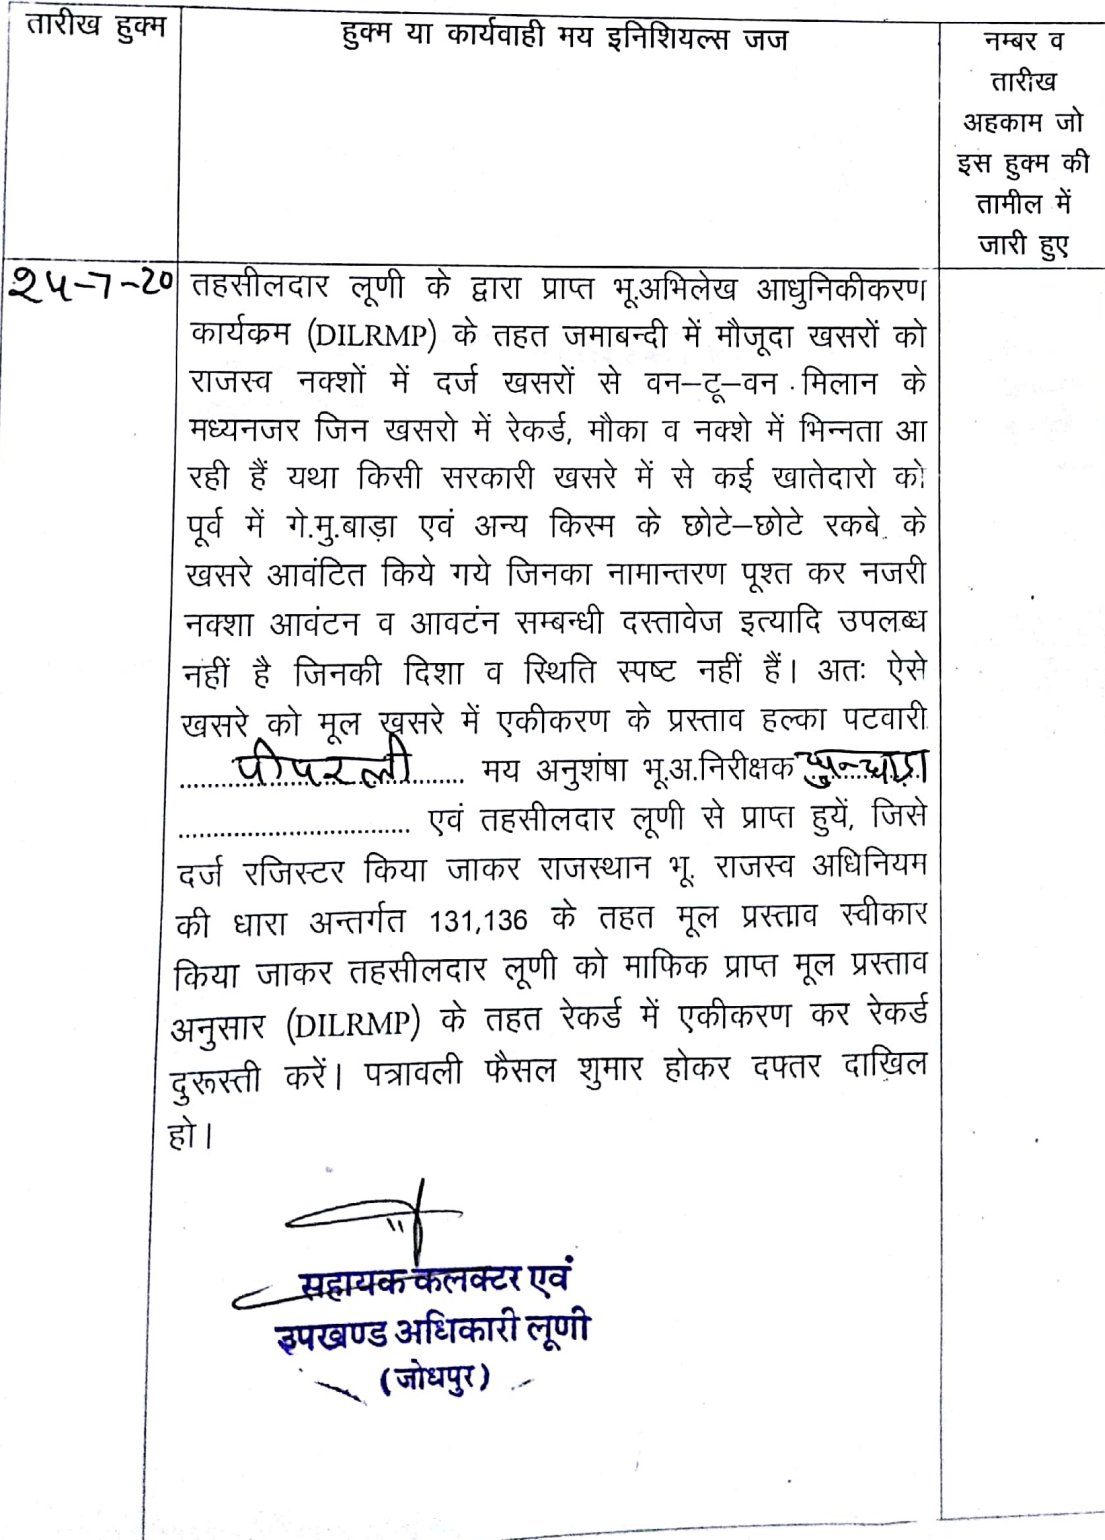 तारीख हुक्म
हुक्म या कार्यवाही मय इनिशियल्स जज
नम्बर व
तारीख
अहकाम जो
इस हुक्म की
तामील में
जारी हुए
२५-7-20
तहसीलदार लूणी के द्वारा प्राप्त भू.अभिलेख आधुनिकीकरण
कार्यकम (DILRMP) के तहत जमाबन्दी में मौजूदा खसरों को
राजस्व नक्शों में दर्ज खसरों से वन–टू–वन मिलान के
मध्यनजर जिन खसरो में रेकर्ड, मौका व नक्शे में भिन्नता आ
रही हैं यथा किसी सरकारी खसरे में से कई खातेदारो को
पूर्व में गे.मु.बाड़ा एवं अन्य किस्म के छोटे–छोटे रकबे के
खसरे आवंटित किये गये जिनका नामान्तरण पूश्त कर नजरी
नक्शा आवंटन व आवटंन सम्बन्धी दस्तावेज इत्यादि उपलब्ध
नहीं है जिनकी दिशा व स्थिति स्पष्ट नहीं हैं। अतः ऐसे
खसरे को मूल खसरे में एकीकरण के प्रस्ताव हल्का पटवारी
पीपरली मय अनुशंषा भू.अ.निरीक्षक
एवं तहसीलदार लूणी से प्राप्त हुयें, जिसे
दर्ज रजिस्टर किया जाकर राजस्थान भू. राजस्व अधिनियम
की धारा अन्तर्गत 131,136 के तहत मूल प्रस्ताव स्वीकार
किया जाकर तहसीलदार लूणी को माफिक प्राप्त मूल प्रस्ताव
अनुसार (DILRMP) के तहत रेकर्ड में एकीकरण कर रेकर्ड
दुरूस्ती करें। पत्रावली फैसल शुमार होकर दफ्तर दाखिल
हो।
सहायक कलक्टर एवं
उपखण्ड अधिकारी लूणी
(जोधपुर)